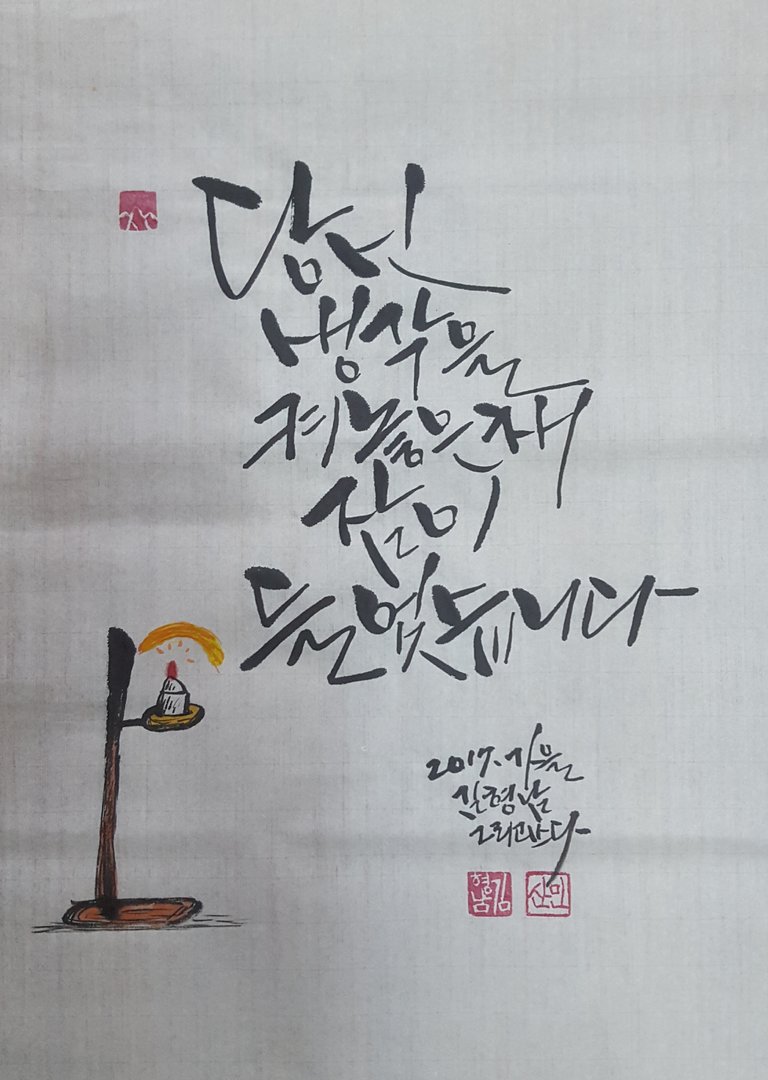 당신
생각을
켜놓은 채
잠이
들었습니다
2017. 가을
김형남
그리고 쓰다
김형남
민산